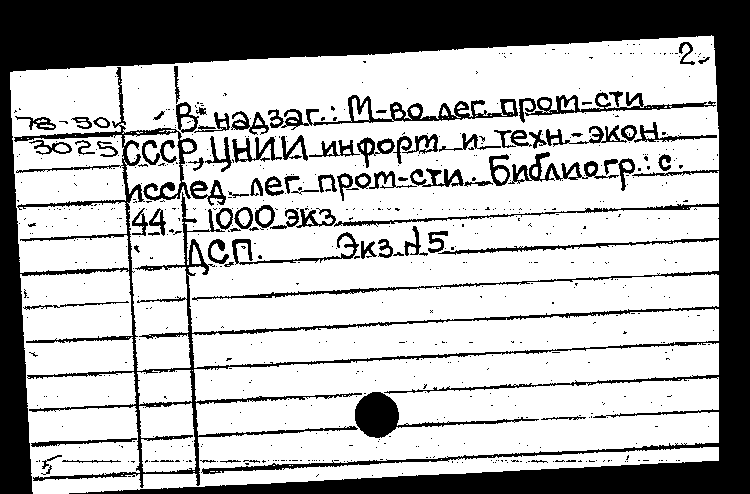 2.
78-50к В надзаг.: М-во лег. пром-сти
3025 СССР, ЦНИИ информ. и техн.-экон.
исслед. лег. пром-сти. Библиогр.: с.
44. - 1000 экз.
ДСП. Экз.№5.
5